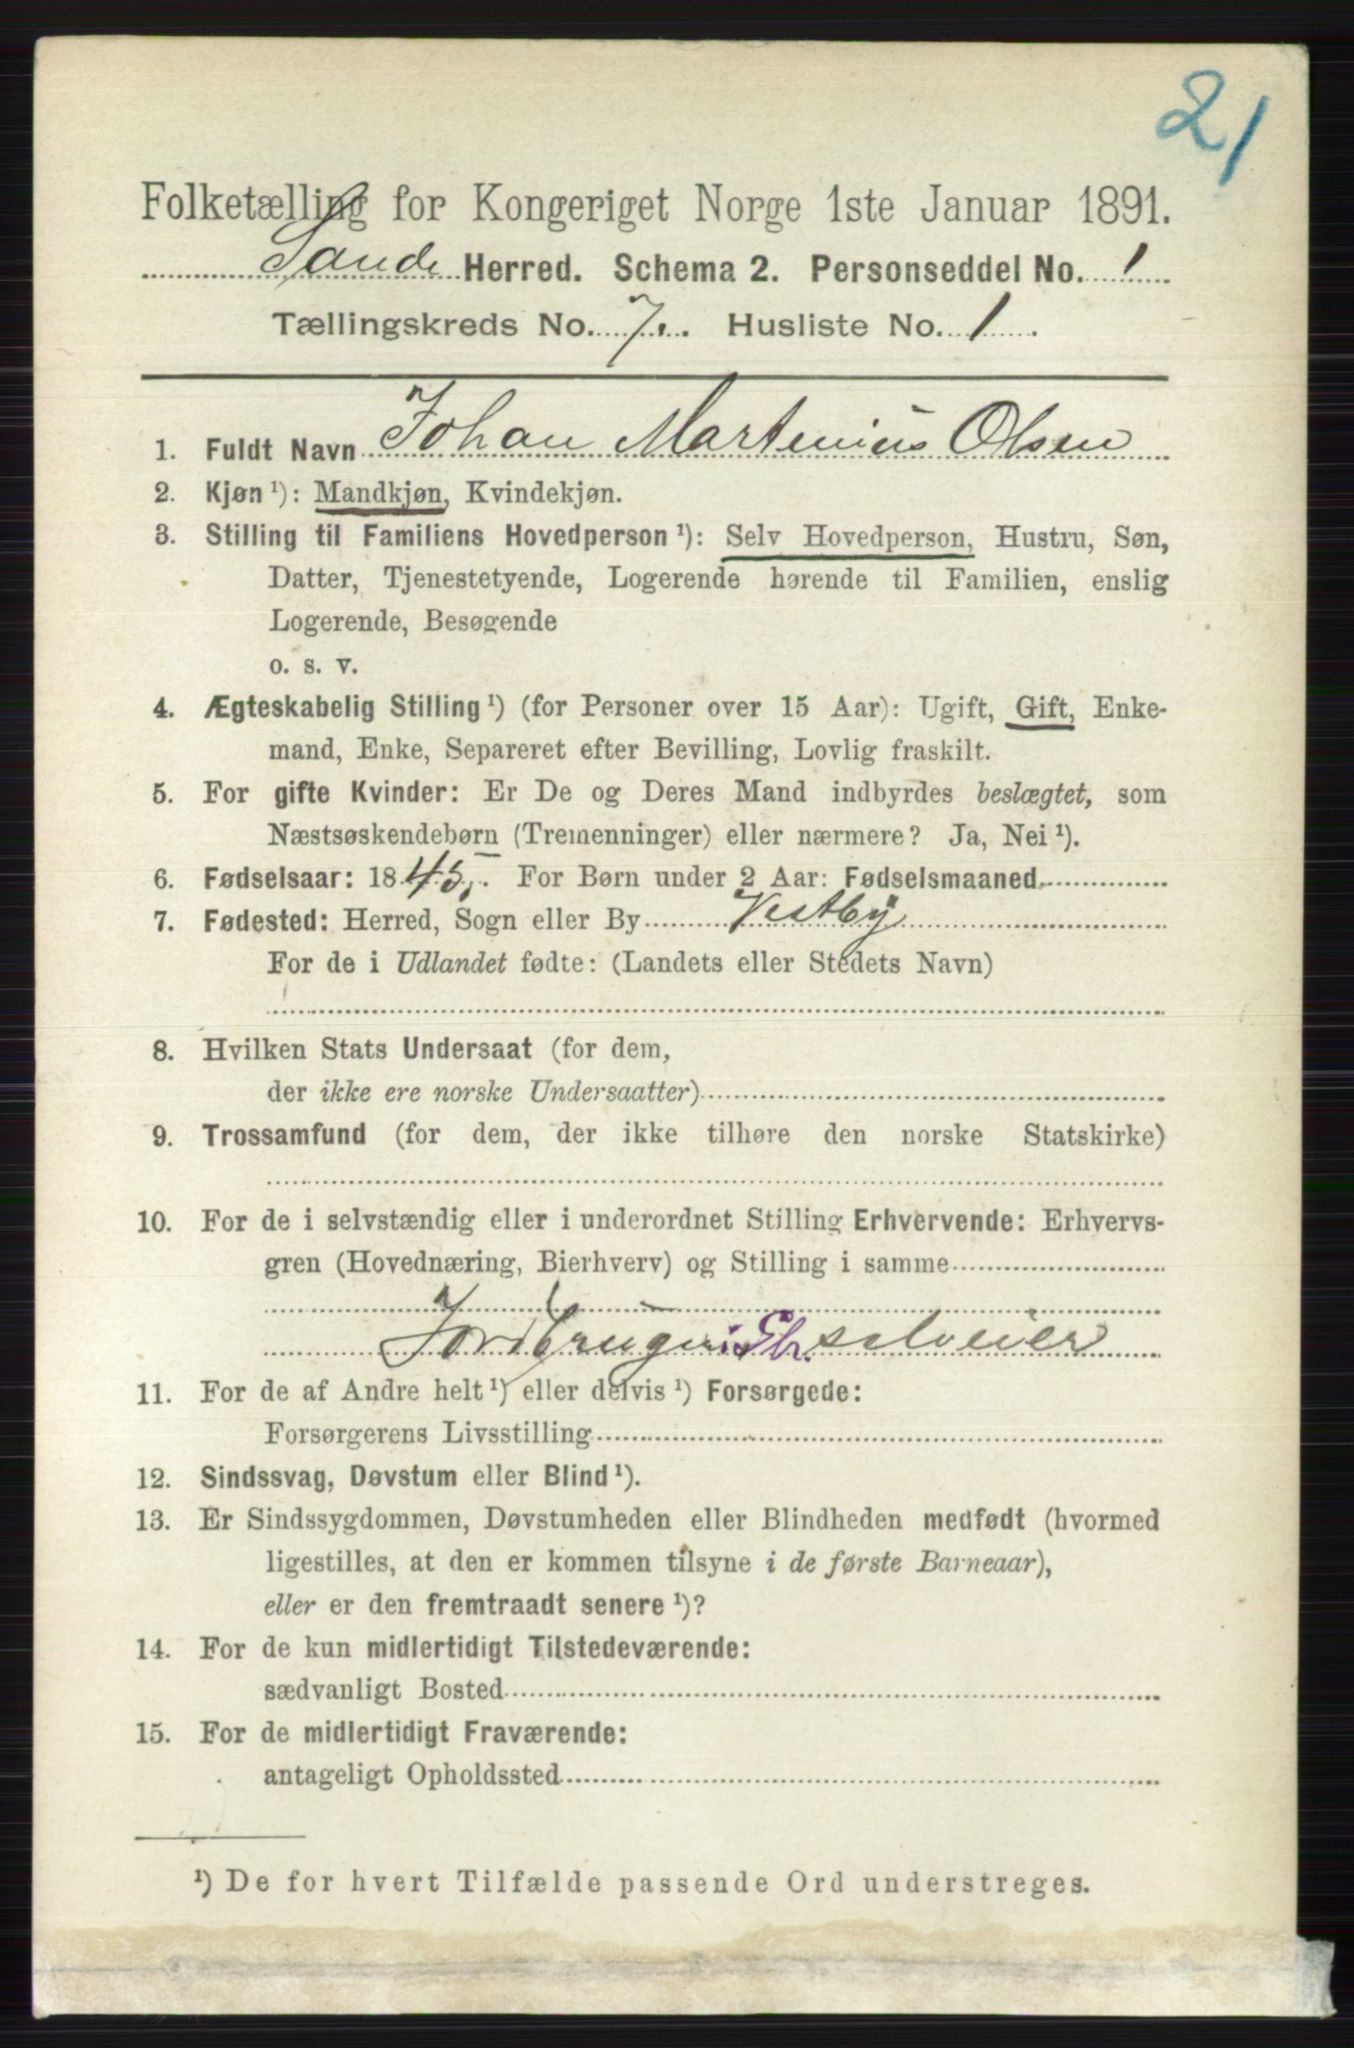 21
Folketælling for Kongeriget Norge 1ste Januar 1891.
Sande Herred. Schema 2. Personseddel No. 1
Tællingskreds No. 7. Husliste No. 1
1. Fuldt Navn Johan Martenius Olsen
2. Kjøn ¹): Mandkjøn, Kvindekjøn.
3. Stilling til Familiens Hovedperson ¹): Selv Hovedperson, Hustru, Søn,
Datter, Tjenestetyende, Logerende hørende til Familien, enslig
Logerende, Besøgende
o. s. v.
4. Ægteskabelig Stilling ¹) (for Personer over 15 Aar): Ugift, Gift, Enke-
mand, Enke, Separeret efter Bevilling, Lovlig fraskilt.
5. For gifte Kvinder: Er De og Deres Mand indbyrdes beslægtet, som
Næstsøskendebørn (Tremenninger) eller nærmere? Ja, Nei ¹).
6. Fødselsaar: 1845. For Børn under 2 Aar: Fødselsmaaned
7. Fødested: Herred, Sogn eller By Vestby
For de i Udlandet fødte: (Landets eller Stedets Navn)
8. Hvilken Stats Undersaat (for dem,
der ikke ere norske Undersaatter)
9. Trossamfund (for dem, der ikke tilhøre den norske Statskirke)
10. For de i selvstændig eller i underordnet Stilling Erhvervende: Erhvervs-
gren (Hovednæring, Bierhverv) og Stilling i samme
Jordbruger i Gbr. selveier
11. For de af Andre helt ¹) eller delvis ¹) Forsørgede:
Forsørgerens Livsstilling
12. Sindssvag, Døvstum eller Blind ¹).
13. Er Sindssygdommen, Døvstumheden eller Blindheden medfødt (hvormed
ligestilles, at den er kommen tilsyne i de første Barneaar),
eller er den fremtraadt senere ¹)?
14. For de kun midlertidigt Tilstedeværende:
sædvanligt Bosted
15. For de midlertidigt Fraværende:
antageligt Opholdssted
¹) De for hvert Tilfælde passende Ord understreges.